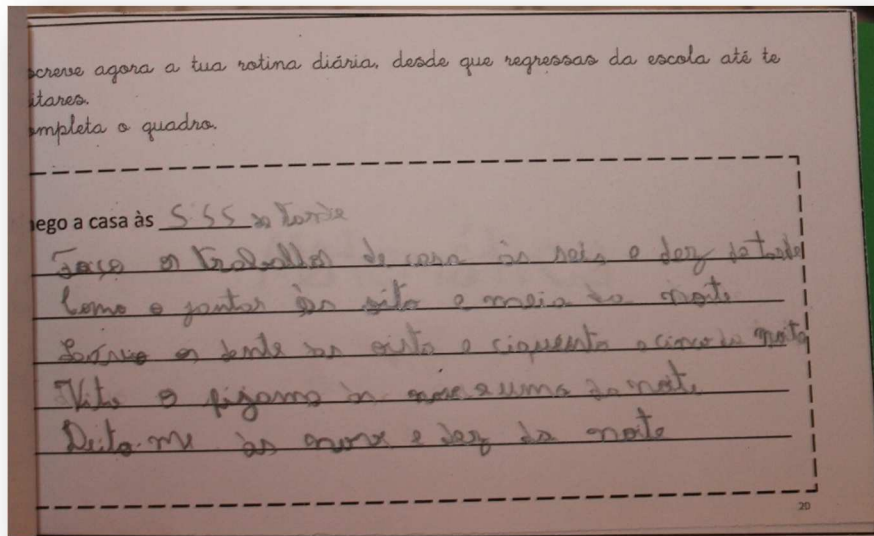 screve agora a tua rotina diária, desde que regressas da escola até te
itares.
ompleta o quadro.
ego a casa às 5 55 da tarde
Faço os trabalhos de casa às seis e dez da tarde
Como o jantar às oito e meia da noite
os dente as oito e ciquenta e cinco da noite
Vito o pijama às nove e uma da noite
Deito-me às nove e dez da noite
20